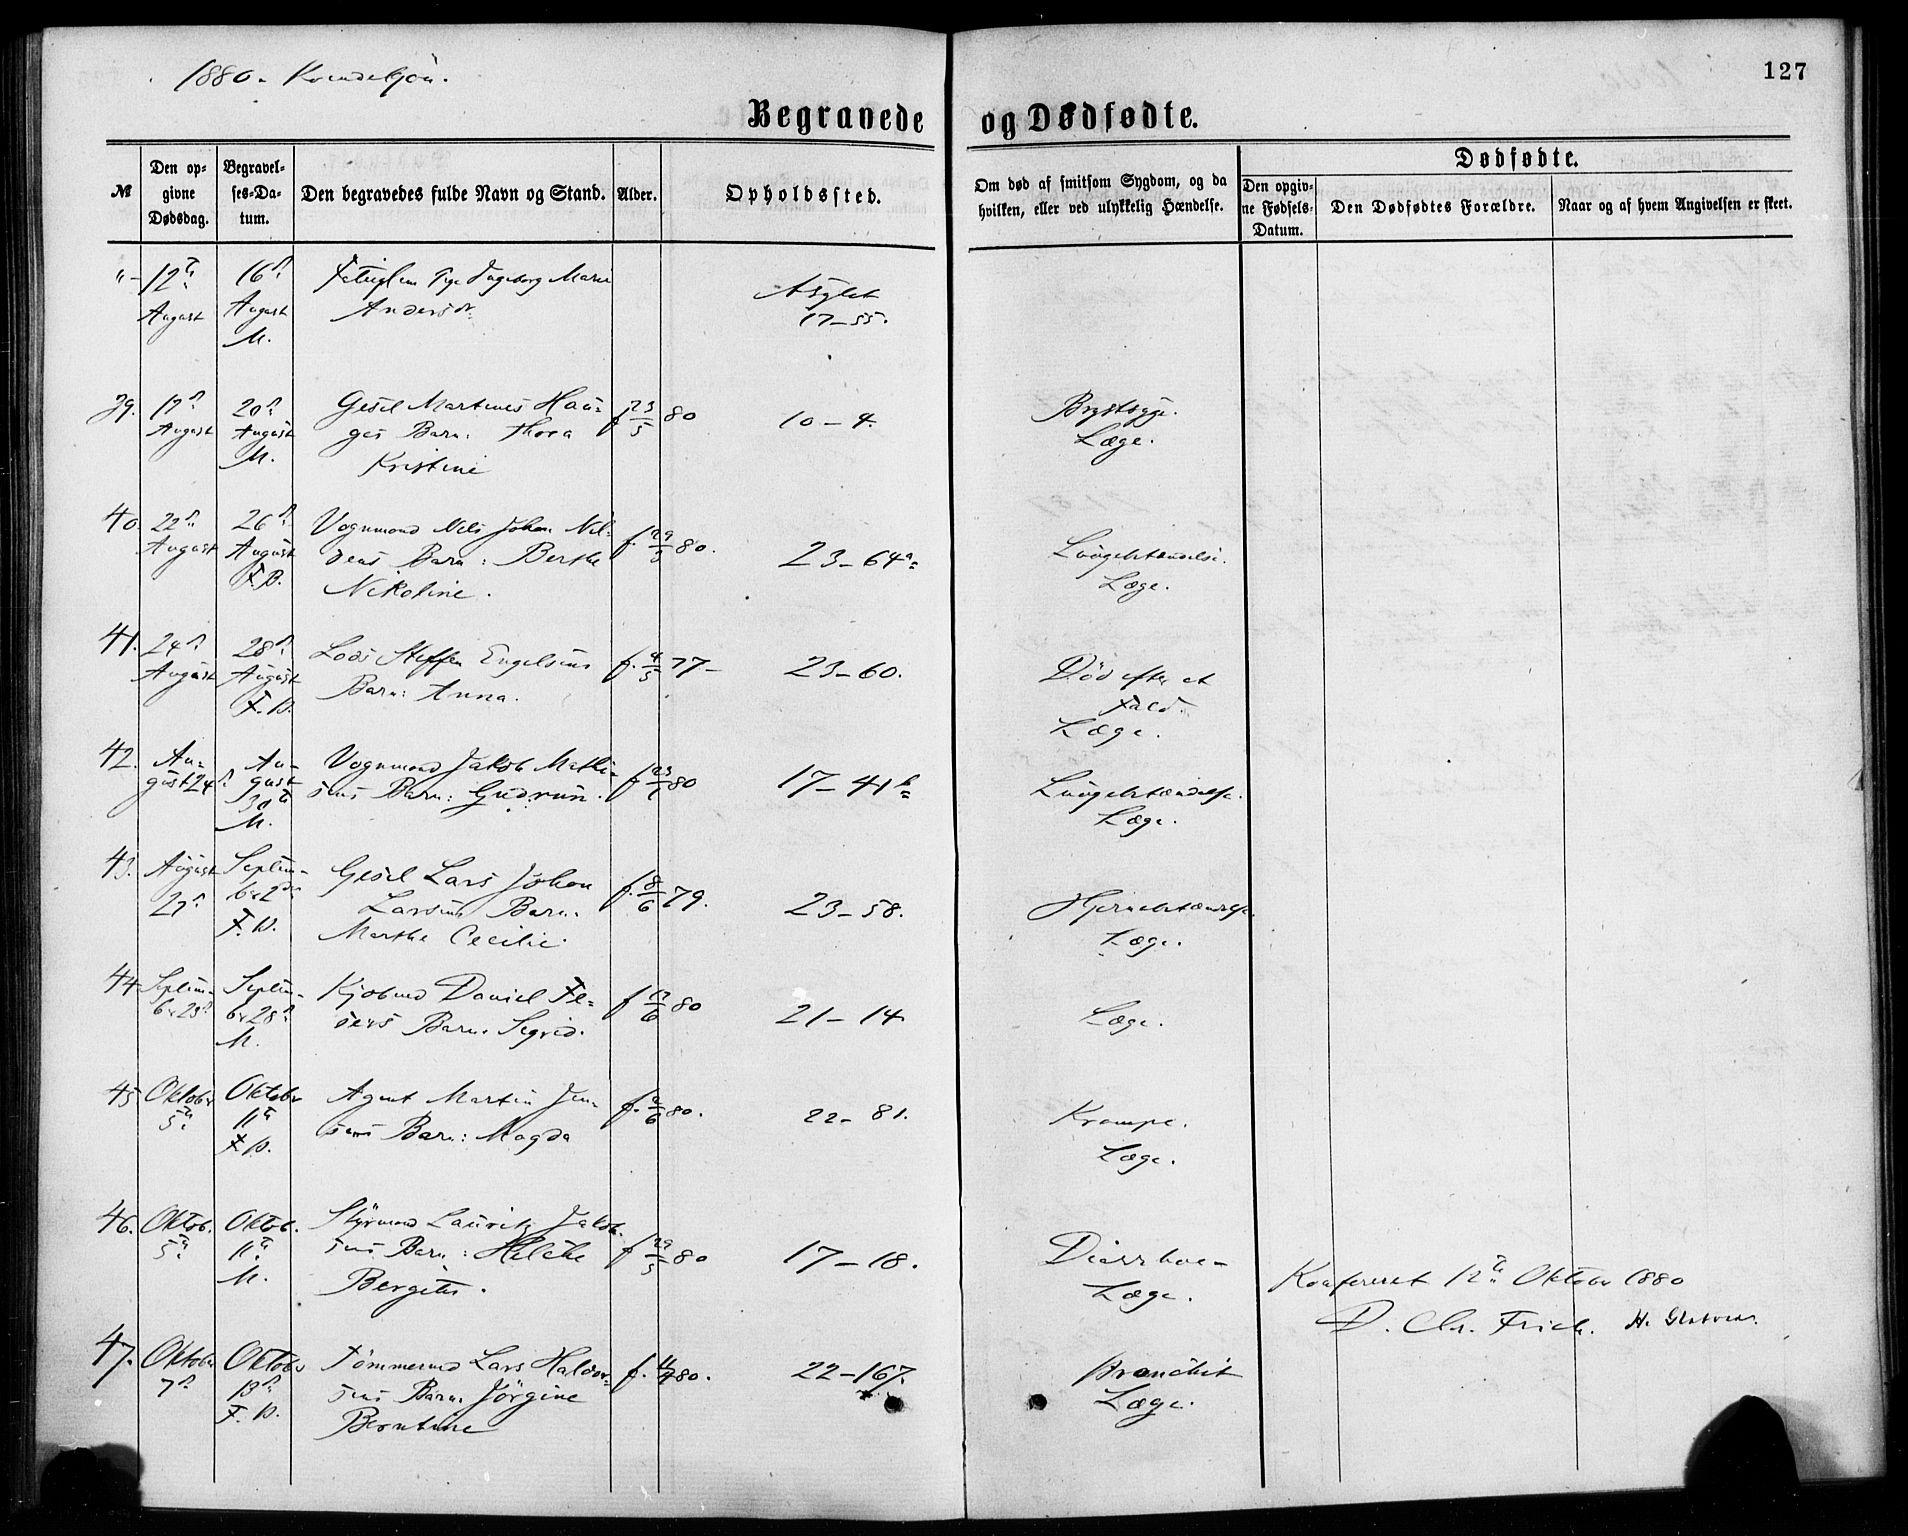 1880. Kvindekjön.
127
Begravede og Dødfødte.
Dødfødte.
№
Den opgivne Dødsdag.
Begravelses-Datum.
Den begravedes fulde Navn og Stand.
Alder.
Opholdssted.
Om død af smitsom Sygdom, og da hvilken, eller ved ulykkelig Hændelse.
Den opgivne Fødsels-Datum.
Den Dødfødtes Forældre.
Naar og af hvem Angivelsen er skeet.
"- 12te August
16de August M.
Pige Ingeborg Marie
Andersdr.
Asylet
17-55.
39. 17de August
20de August M.
Gesel Martines Hau-
ges Barn: Thora
Kristine
f. 23/5 80
10-4.
Brystsyge.
Læge.
40. 22de August
26de August F.B.
Vognmand Nils Johan Nil-
sens Barn: Berthe
Nikoline.
f. 29/5 80.
23-64a
Lungebetændelse.
Læge.
41. 24de August
28de August F.B.
Lods Steffen Engelsens
Barn: Anna.
f. 4/5 77-
23-60.
Död efter et
Fald.
Læge.
42. August 24de
August 30te M.
Vognmand Jakob Mathi-
sens Barn: Gudrun.
80
17-41b
Lungebetændelse.
Læge.
43. August
September 2den F.B.
Gesel Lars Johan
Larsens Barn:
Marthe Cecilie.
f. 8/6 79.
23-58.
Hjernebetændelse.
Læge.
44. Septem-
ber 23de
September 28de
M.
Kjöbmd Daniel Fe-
ders Barn: Sigrid.
80
21-14
Læge.
45. Oktober
5te
Oktober
11te
F.B.
Agent Martin Jen-
sens Barn: Magda
80.
22-81.
Krampe.
Læge.
46. Oktob.
5te
Oktob.
11te
M.
Styrmand Lauritz Jakob-
sens Barn:
f. 29/5 80
17-18.
Diarrhoe-
Læge.
Konfereret 12te Oktober 1880
D. Chr. Frich.
47. Oktober
7de
Oktober
13de
F.B.
Tömmermd Lars Haldor-
sens Barn: Jörgine
Berntine
f. 11/4 80.
22-167.
Bronchit
Læge.